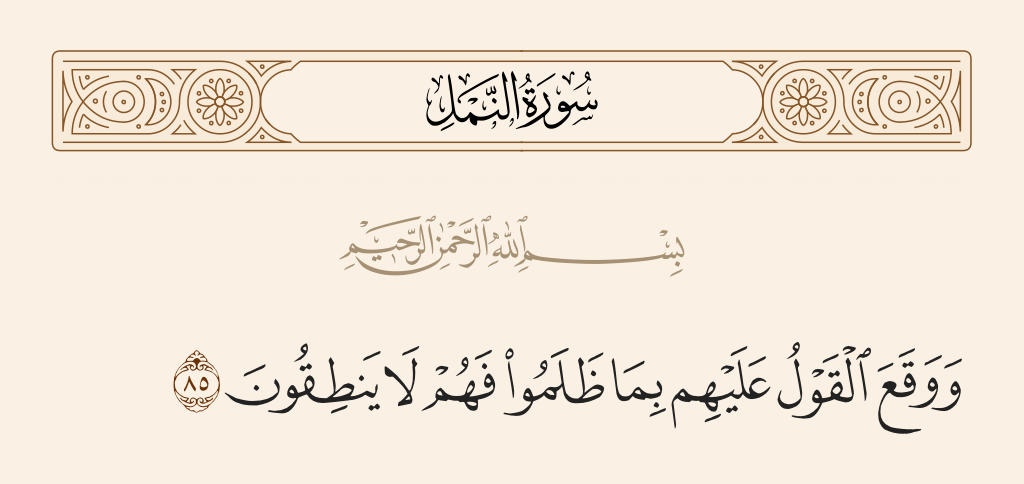 سُورَةُ النَّمْلِ
بِسْمِ ٱللَّهِ ٱلرَّحْمَٰنِ ٱلرَّحِيمِ
وَوَقَعَ ٱلْقَوْلُ عَلَيْهِم بِمَا ظَلَمُوا۟ فَهُمْ لَا يَنطِقُونَ ٨٥